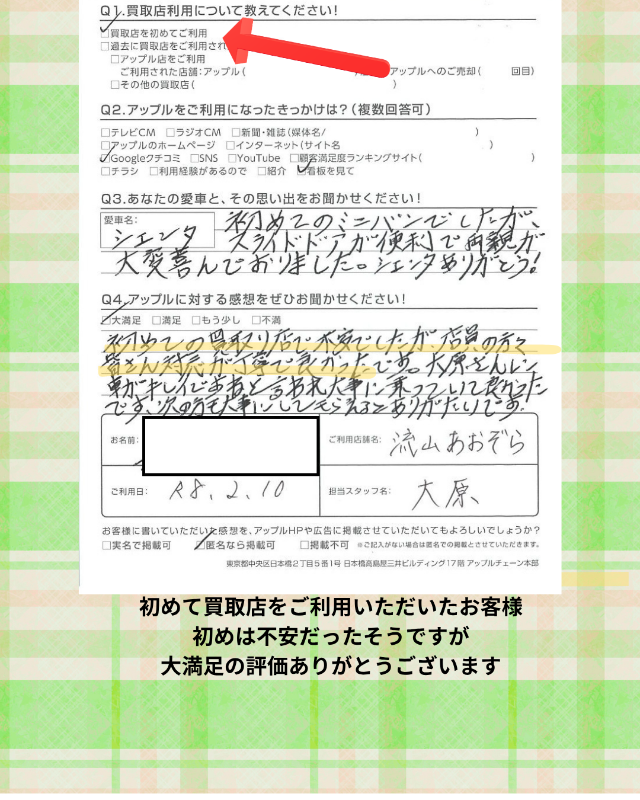 Q1.買取店利用について教えてください!
□買取店を初めてご利用
□過去に買取店をご利用され
□アップル店をご利用
ご利用された店舗:アップル( アップルへのご売却( 回目)
□その他の買取店( )
Q2.アップルをご利用になったきっかけは?(複数回答可)
□テレビCM □ラジオCM □新聞・雑誌(媒体名/ )
□アップルのホームページ □インターネット(サイト名 )
□Googleクチコミ □SNS □YouTube □顧客満足度ランキングサイト( )
□チラシ □利用経験があるので □紹介 □看板を見て
Q3.あなたの愛車と、その思い出をお聞かせください!
愛車名:
シエンタ
初めてのミニバンでしたが、
スライドドアが便利で両親が
大変喜んでおりました。シエンタありがとう!
Q4.アップルに対する感想をぜひお聞かせください!
□大満足 □満足 □もう少し □不満
初めての買取り店で不安でしたが、店員の方々
皆さん対応が丁寧で良かったです。大原さんに、
車がキレイですねと言われ大事に乗っていて良かった
です、次の方も大事にしてもらえるとありがたいです。
お名前: ご利用店舗名: 流山あおぞら
ご利用日: R8.2.10 担当スタッフ名: 大原
お客様に書いていただいた感想を、アップルHPや広告に掲載させていただいてもよろしいでしょうか?
□実名で掲載可 □匿名なら掲載可 □掲載不可 ※ご記入がない場合は匿名での掲載とさせていただきます。
東京都中央区日本橋2丁目5番1号 日本橋高島屋三井ビルディング17階 アップルチェーン本部
初めて買取店をご利用いただいたお客様
初めは不安だったそうですが
大満足の評価ありがとうございます